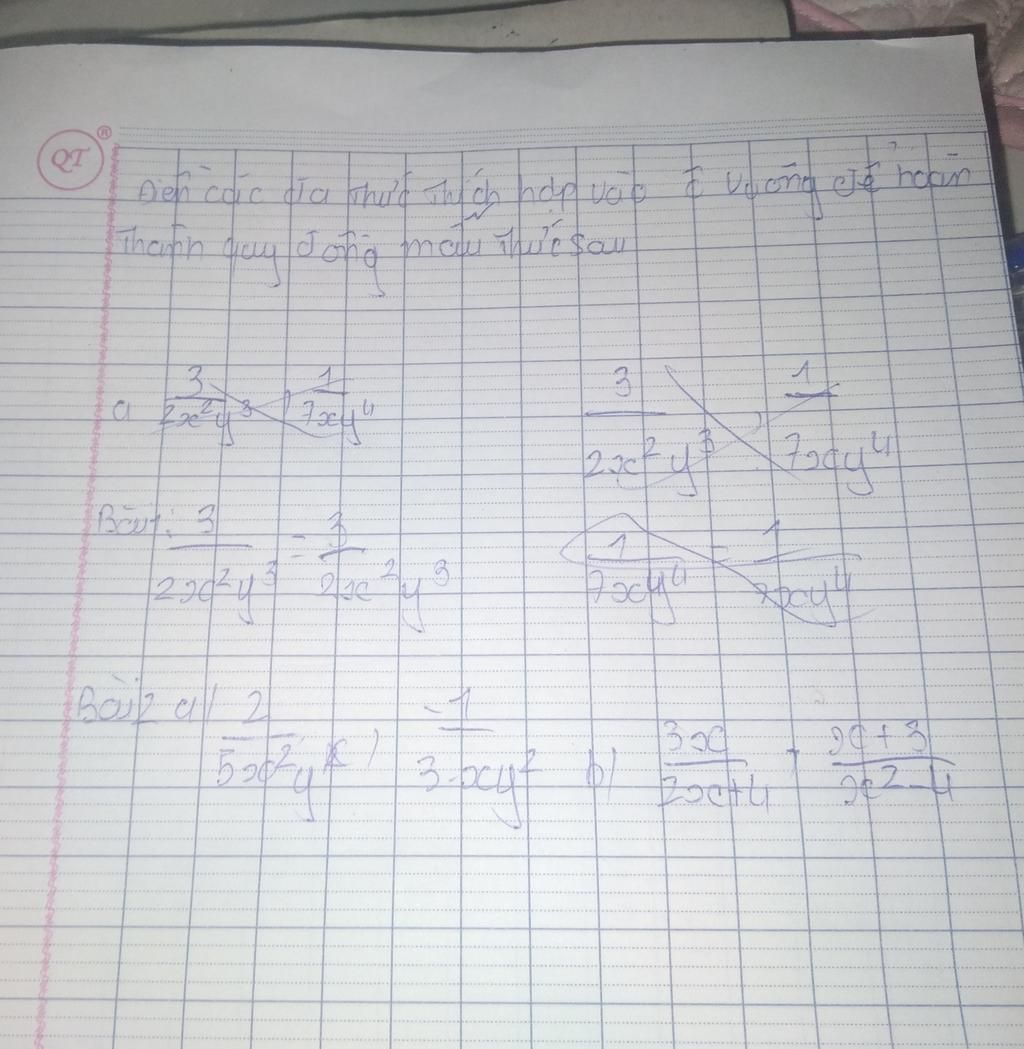 QT ®
Điền các đa thức thích hợp vào ô vuông để hoàn
thành quy đồng mẫu thức sau
a 3/2x²y³ 1/7xy⁴ 3/2x²y³ 1/7xy⁴
Bài 1: 3/2x²y³ = 3/2x²y³ 1/7xy⁴ = 1/7xy⁴
Bài 2 a) 2/5x²y -1/3xy² b) 3x/2x+4 x+3/x²-4